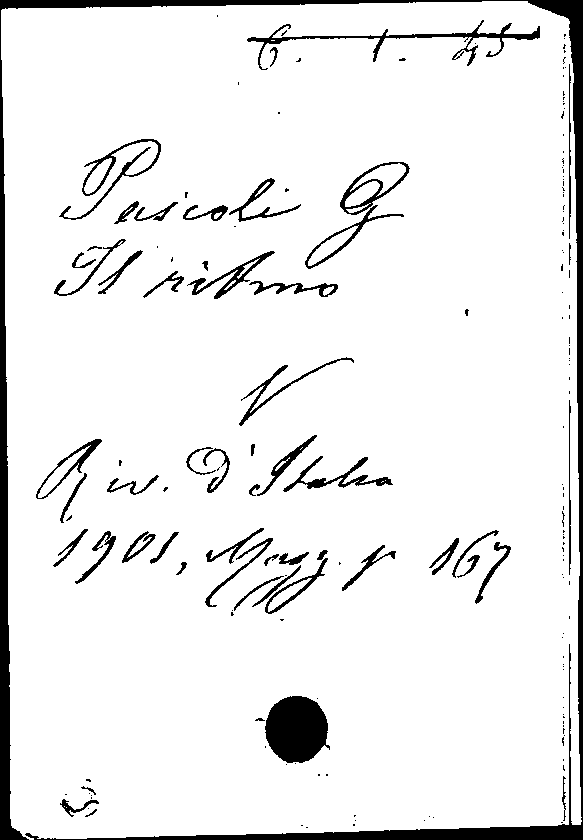 C. 1. 45
Pascoli G
Il ritmo
V
Riv. d'Italia
1901, Magg. p 167